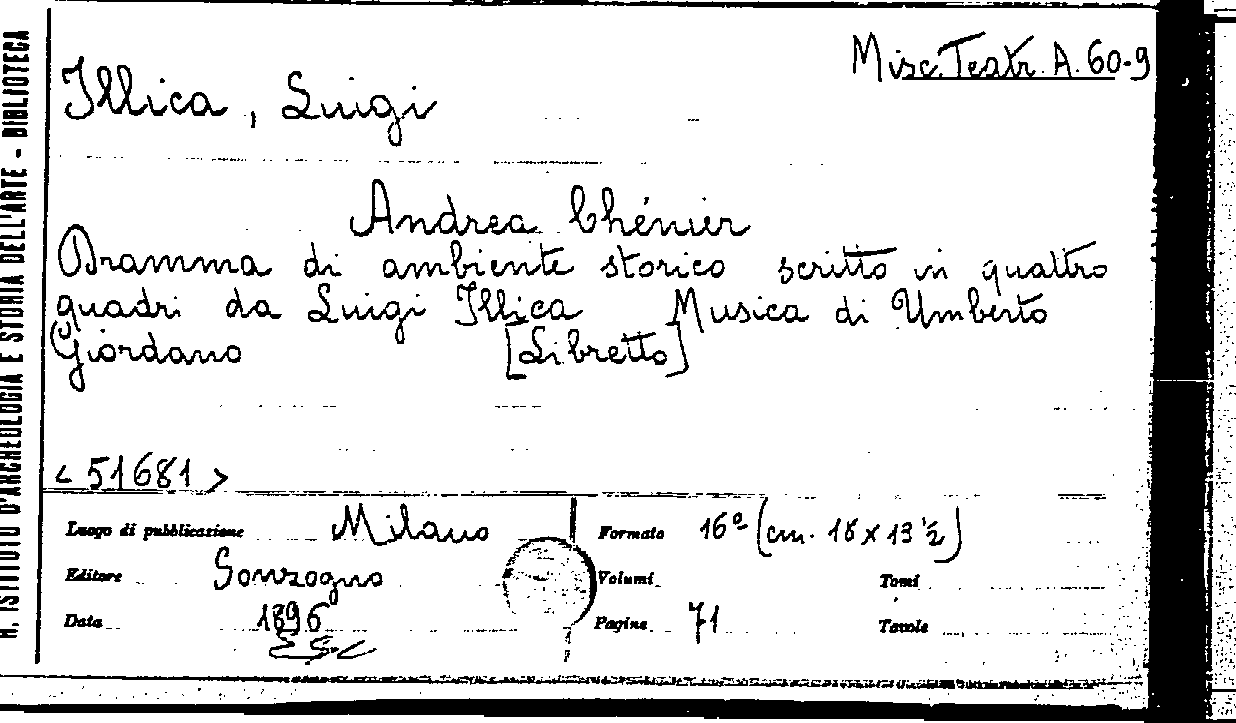 R. ISTITUTO D'ARCHEOLOGIA E STORIA DELL'ARTE - BIBLIOTECA
Misc. Teatr. A. 60-9
Illica, Luigi
Andrea Chénier
Dramma di ambiente storico scritto in quattro
quadri da Luigi Illica Musica di Umberto
Giordano [Libretto]
< 51681 >
Luogo di pubblicazione Milano Formato 16º (cm. 18 x 13 ½)
Editore Sonzogno Volumi Tomi
Data 1896 Pagine 71 Tavole